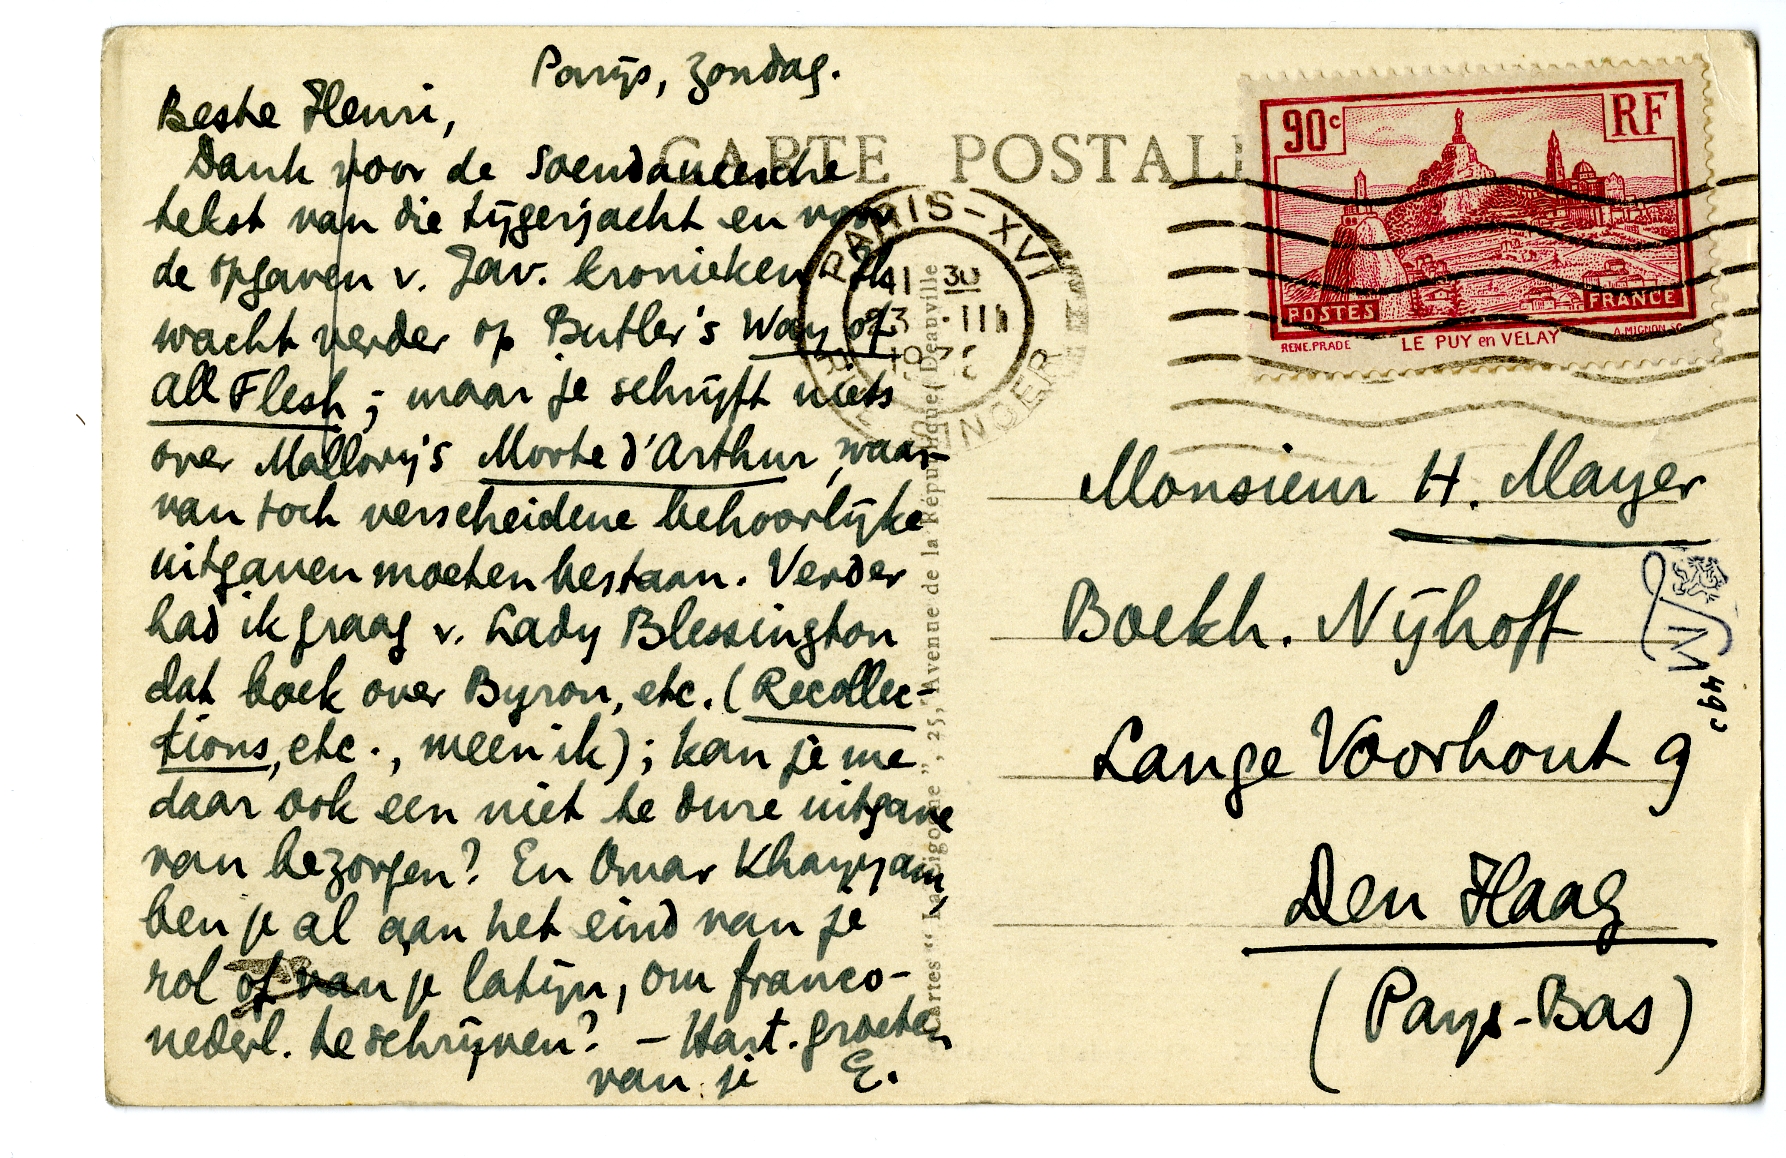 Parijs, Zondag.
Beste Henri,
Dank voor de Soendaneesche
tekst van die tijgerjacht en voor
de opgaven v. Jav. kronieken. Ik
wacht verder op Butler's Way of
all Flesh; maar je schrijft niets
over Mallory's Morte d'Arthur, waar-
van toch verscheidene behoorlijke
uitgaven moeten bestaan. Verder
had ik graag v. Lady Blessington
dat boek over Byron, etc. (Recollec-
tions, etc., meen ik); kan je me
daar ook een niet te dure uitgave
van bezorgen? En Omar Khayyam,
ben je al aan het eind van je
rol of van je latijn, om franco-
nederl. te schrijven? — Hart. groeten
van je E.
CARTE POSTALE
PARIS-XVI
11 30
23 · III
SINGER
Cartes "La Cigogne", 25, Avenue de la République, Deauville
90c
RF
POSTES
FRANCE
RENE.PRADE
LE PUY en VELAY
A.MIGNON.SC
Monsieur H. Mayer
Boekh. Nijhoff
Lange Voorhout 9
Den Haag
(Pays-Bas)
MN
49c